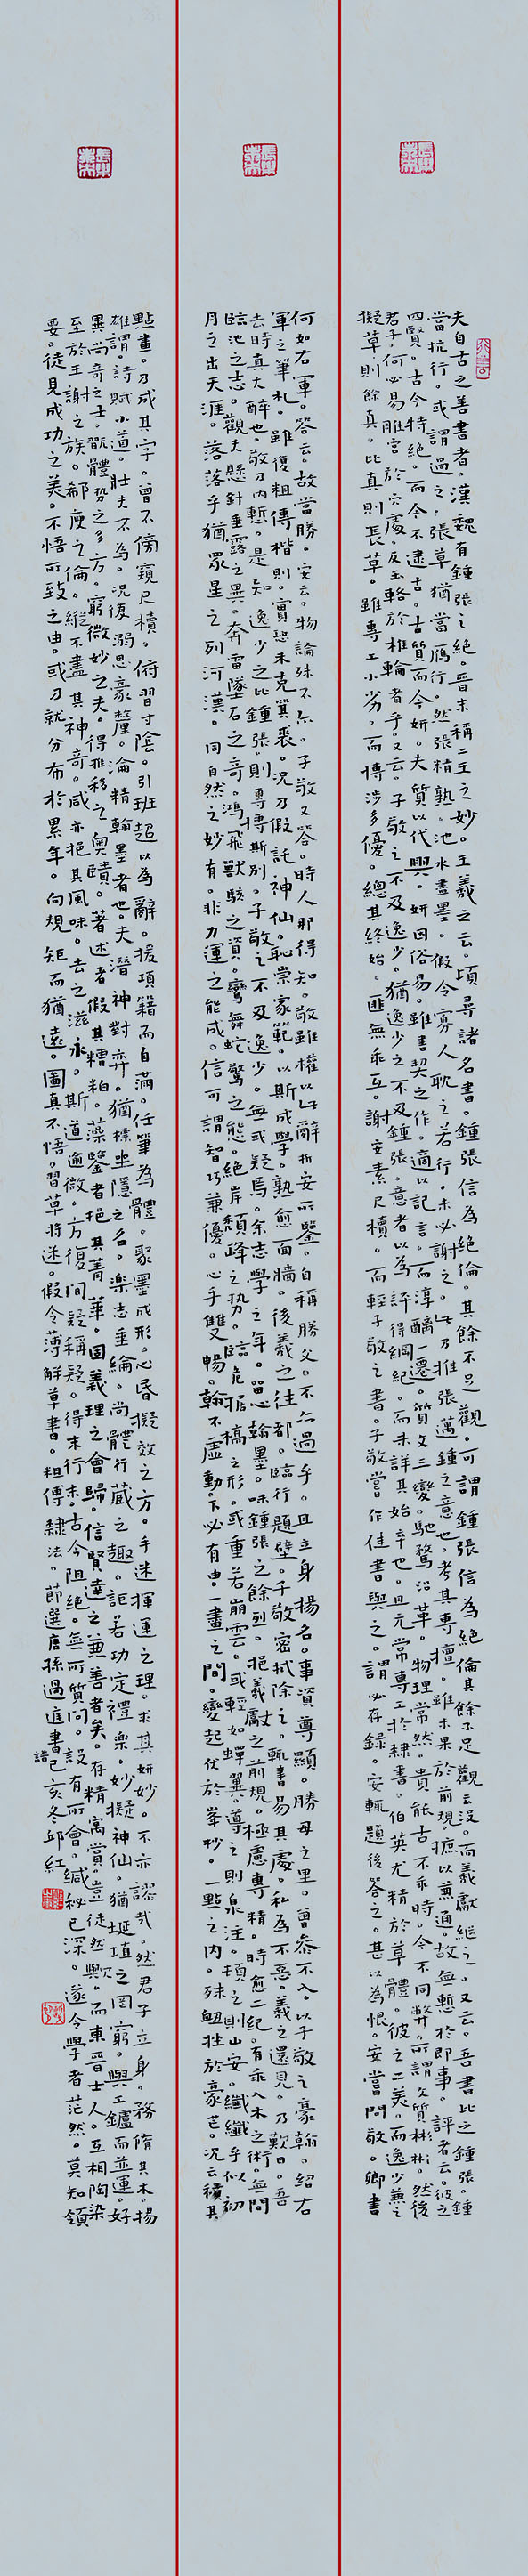 夫自古之善書者。漢魏有鍾張之絕。晉末稱二王之妙。王羲之云。頃尋諸名書。鍾張信為絕倫。其餘不足觀。可謂鍾張信為絕倫其餘不足觀云沒。而羲獻繼之。又云。吾書比之鍾張。鍾
當抗行。或謂過之。張草猶當鴈行。然張精熟。池水盡墨。假令寡人耽之若行。未必謝之。此乃推張邁鍾之意也。考其專擅。雖未果於前規。摭以兼通。故無慙於即事。評者云。彼之
四賢。古今特絕。而今不逮古。古質而今妍。夫質以代興。妍因俗易。雖書契之作。適以記言。而淳醨一遷。質文三變。馳騖沿革。物理常然。貴能古不乖時。今不同弊。所謂文質彬彬。然後
君子。何必易雕宮於穴處。反玉輅於椎輪者乎。又云。子敬之不及逸少。猶逸少之不及鍾張。意者以為評得綱紀。而未詳其始卒也。且元常專工於隸書。伯英尤精於草體。彼之二美。而逸少兼之
擬草則餘真。比真則長草。雖專工小劣。而博涉多優。總其終始。匪無乖互。謝安素尺牘。而輕子敬之書。子敬嘗作佳書與之。謂必存錄。安輒題後答之。甚以為恨。安嘗問敬。卿書
何如右軍。答云。故當勝。安云。物論殊不尒。子敬又答。時人那得知。敬雖權以此辭折安所鑒。自稱勝父。不亦過乎。且立身揚名。事資尊顯。勝母之里。曾參不入。以子敬之豪翰。紹右
軍之筆札。雖復粗傳楷則。實恐未克箕裘。況乃假託神仙。恥崇家範。以斯成學。孰愈面牆。後羲之往都。臨行題壁。子敬密拭除之。輒書易其處。私為不惡。羲之還見。乃歎曰。吾
去時真大醉也。敬乃內慙。是知逸少之比鍾張。則專博斯別。子敬之不及逸少。無或疑焉。余志學之年。留心翰墨。味鍾張之餘烈。挹羲獻之前規。極慮專精。時愈二紀。有乖入木之術。無間
臨池之志。觀夫懸針垂露之異。奔雷墜石之奇。鴻飛獸駭之資。鸞舞蛇驚之態。絕岸頹峰之勢。臨危據槁之形。或重若崩雲。或輕如蟬翼。導之則泉注。頓之則山安。纖纖乎似初
月之出天涯。落落乎猶眾星之列河漢。同自然之妙有。非力運之能成。信可謂智巧兼優。心手雙暢。翰不虛動。下必有由。一畫之間。變起伏於峯杪。一點之內。殊衄挫於豪芒。況云積其
點畫。乃成其字。曾不傍窺尺牘。俯習寸陰。引班超以為辭。援項籍而自滿。任筆為體。聚墨成形。心昏擬效之方。手迷揮運之理。求其妍妙。不亦謬哉。然君子立身。務脩其本。揚
雄謂。詩賦小道。壯夫不為。況復溺思豪釐。淪精翰墨者也。夫潛神對弈。猶標坐隱之名。樂志垂綸。尚體行藏之趣。詎若功定禮樂。妙擬神仙。猶埏埴之罔窮。與工鑪而並運。好
異尚奇之士。翫體勢之多方。窮微妙之夫。得推移之奧賾。著述者假其糟粕。藻鑒者挹其菁華。固義理之會歸。信賢達之兼善者矣。存精寓賞。豈徒然歟。而東晉士人。互相陶染
至於王謝之族。郗庾之倫。縱不盡其神奇。咸亦挹其風味。去之滋永。斯道逾微。方復聞疑稱疑。得末行末。古今阻絕。無所質問。設有所會。緘秘已深。遂令學者茫然。莫知領
要。徒見成功之美。不悟所致之由。或乃就分布於累年。向規矩而猶遠。圖真不悟。習草將迷。假令薄解草書。粗傳隸法。節選唐孫過庭書譜己亥冬邱紅